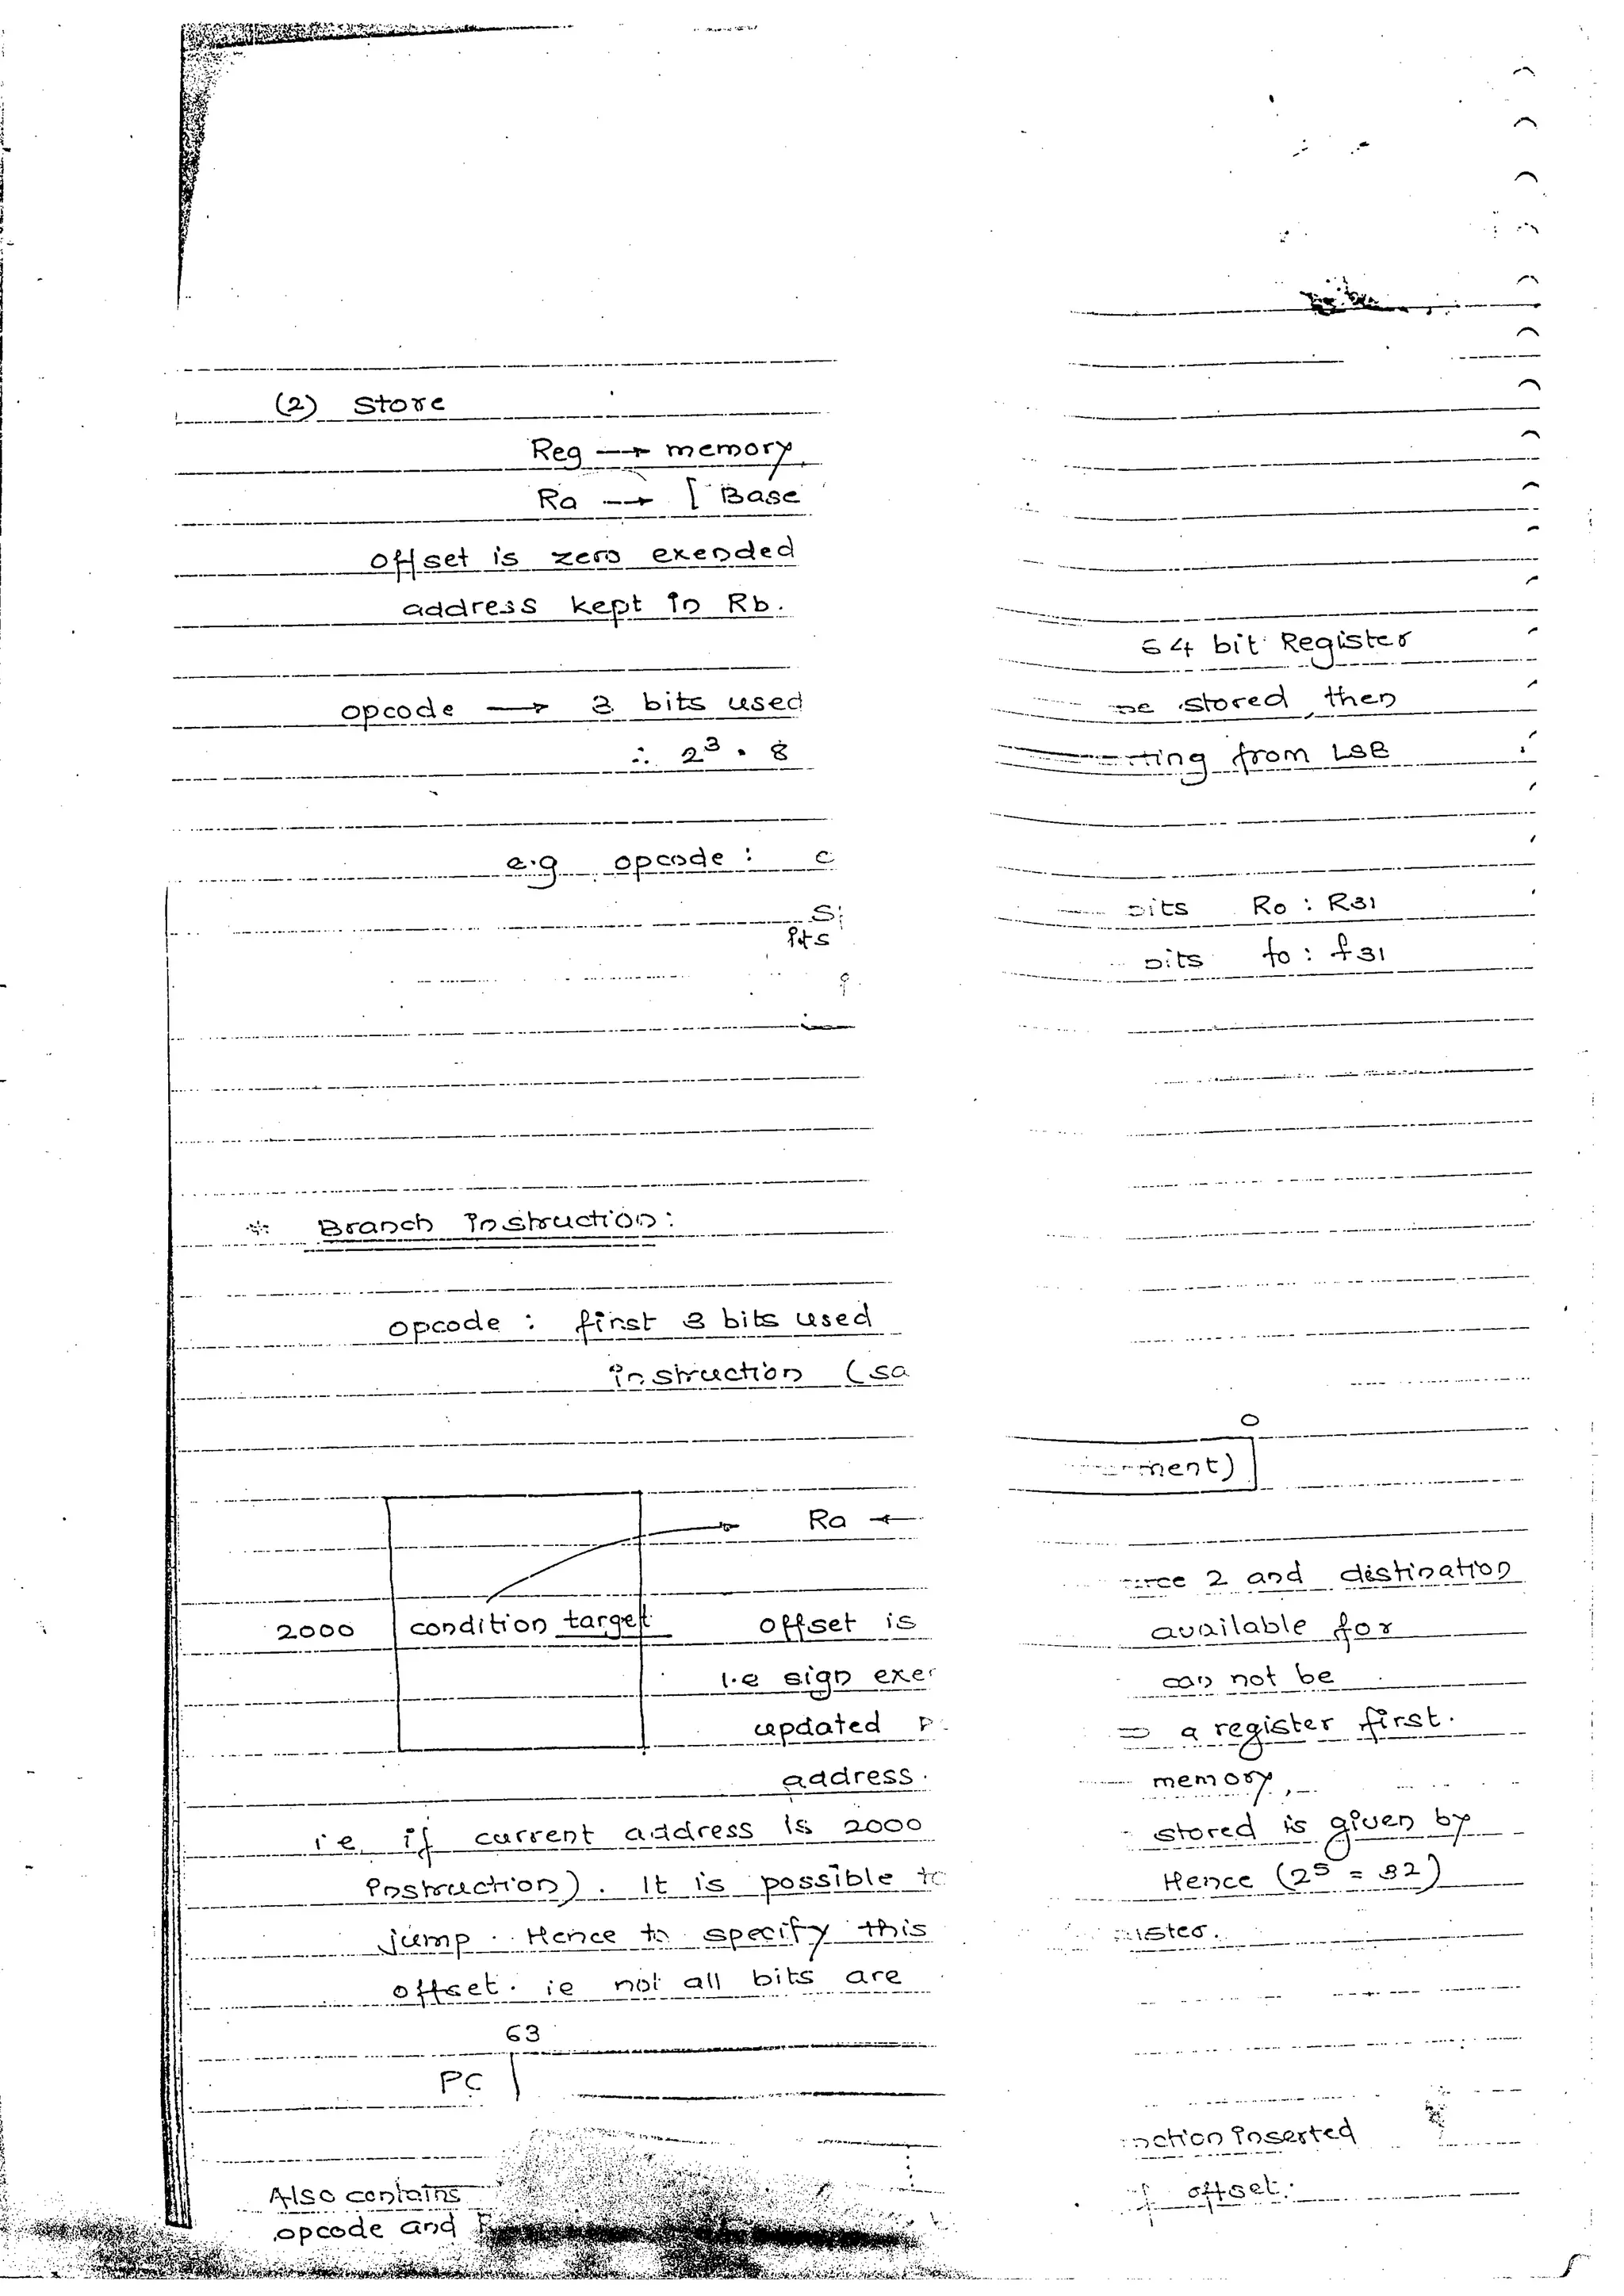 (2) Store
Reg → memory
Ra → [ Base
offset is zero exended
address kept in Rb.
64 bit Register
opcode → 3 bits used
be stored, then
∴ 2³ = 8
rting from LSB
e.g opcode : c
bits R0 : R31
its
bits f0 : f31
* Branch Instruction:
opcode : first 3 bits used
instruction (sa
0
ment)
Ra ←
rce 2 and distination
2000 condition target offset is
available for
i.e sign exe
can not be
updated P
a register first.
address.
memory,
i.e. if current address is 2000
stored is given by
instruction). It is possible to
Hence (2⁵ = 32)
jump. Hence to specify this
ister.
offset. ie not all bits are
63
PC
nction inserted
Also contains
f offset.
opcode and